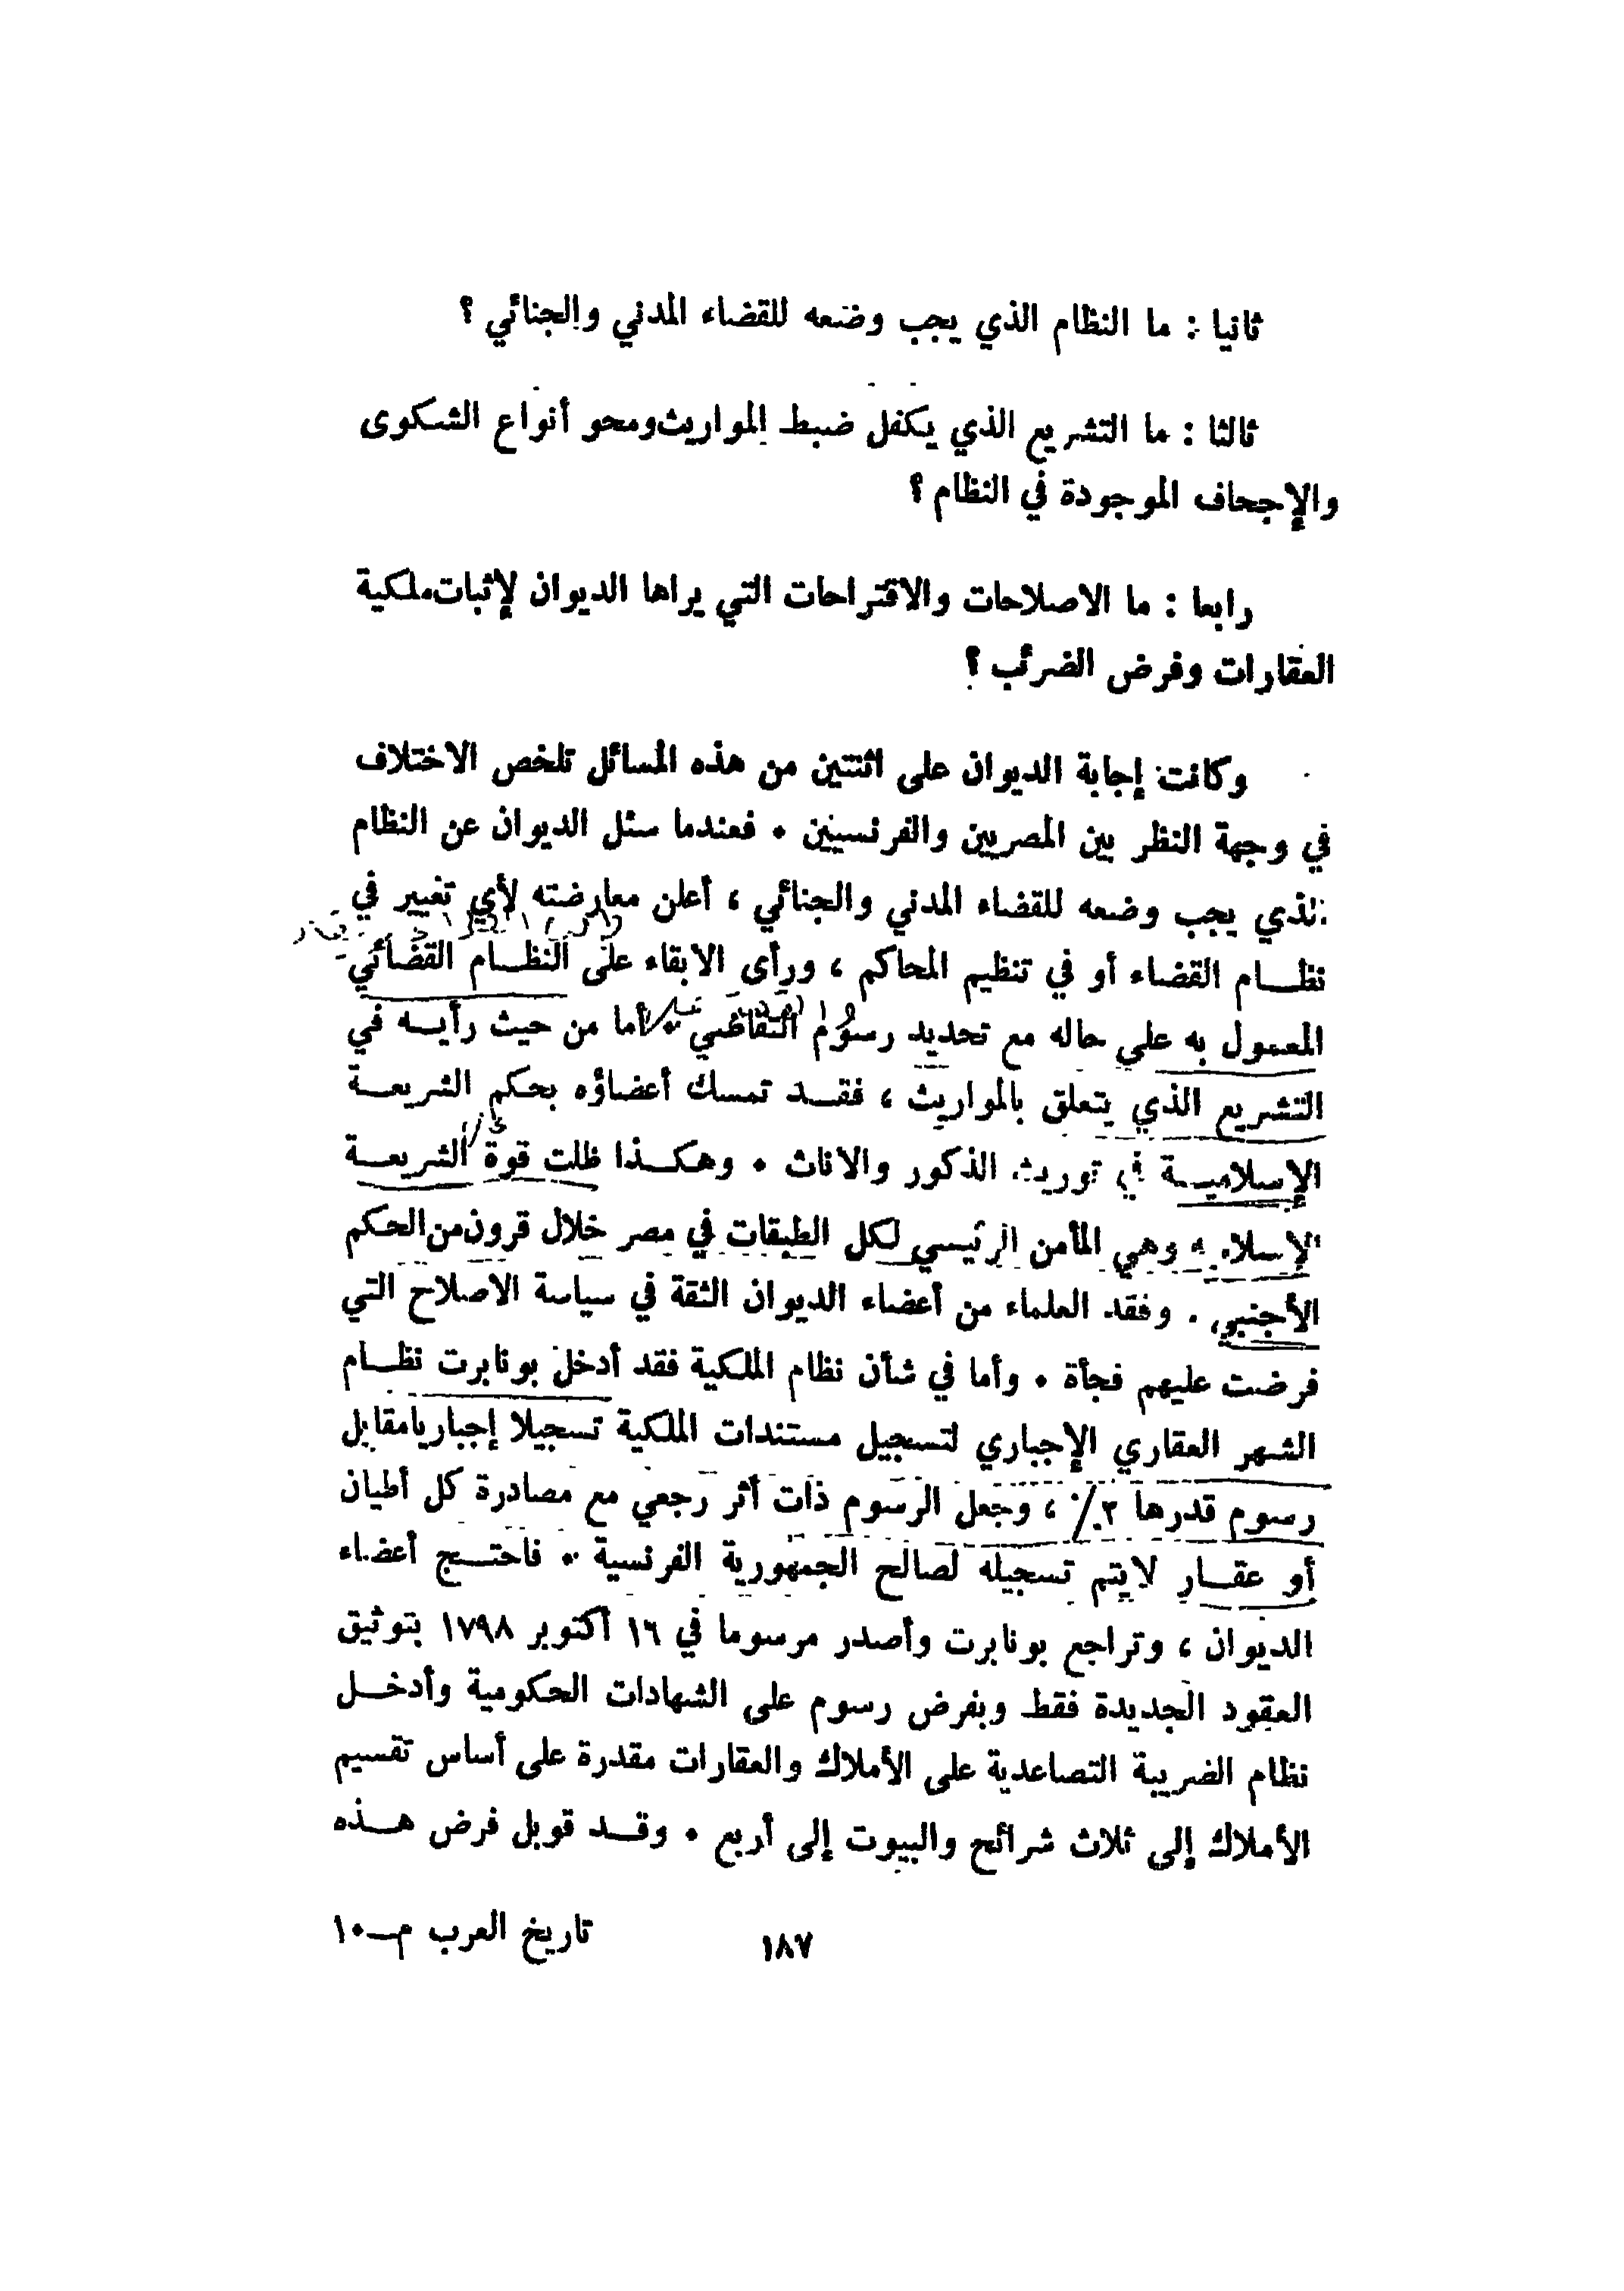 ثانيا : ما النظام الذي يجب وضعه للقضاء المدني والجنائي ؟
ثالثا : ما التشريع الذي يكفل ضبط المواريث ومحو أنواع الشكوى
والإجحاف الموجودة في النظام ؟
رابعا : ما الاصلاحات والاقتراحات التي يراها الديوان لإثبات ملكية
العقارات وفرض الضرئب ؟
وكانت إجابة الديوان على اثنتين من هذه المسائل تلخص الاختلاف
في وجهة النظر بين المصريين والفرنسيين . فعندما سئل الديوان عن النظام
الذي يجب وضعه للقضاء المدني والجنائي ، أعلن معارضته لأي تغيير في
نظــام القضاء أو في تنظيم المحاكم ، ورأى الابقاء على النظــام القضائي
المعمول به على حاله مع تحديد رسوم التقاضي . أما من حيث رأيــه في
التشريع الذي يتعلق بالمواريث ، فقــد تمسك أعضاؤه بحكم الشريعــة
الإسلاميــة في توريث الذكور والاناث . وهكــذا ظلت قوة الشريعــة
الإسلامية وهي المأمن الرئيسي لكل الطبقات في مصر خلال قرون من الحكم
الأجنبي . وفقد العلماء من أعضاء الديوان الثقة في سياسة الاصلاح التي
فرضت عليهم فجأة . وأما في شأن نظام الملكية فقد أدخل بونابرت نظــام
الشهر العقاري الإجباري لتسجيل مستندات الملكية تسجيلا إجباريا مقابل
رسوم قدرها ٢٪ ، وجعل الرسوم ذات أثر رجعي مع مصادرة كل أطيان
أو عقــار لايتم تسجيله لصالح الجمهورية الفرنسية . فاحتــج أعضاء
الديوان ، وتراجع بونابرت وأصدر مرسوما في ١٦ أكتوبر ١٧٩٨ بتوثيق
العقود الجديدة فقط وبفرض رسوم على الشهادات الحكومية وأدخــل
نظام الضريبة التصاعدية على الأملاك والعقارات مقدرة على أساس تقسيم
الأملاك إلى ثلاث شرائح والبيوت إلى أربع . وقــد قوبل فرض هــذه
١٨٧ تاريخ العرب م–١٠